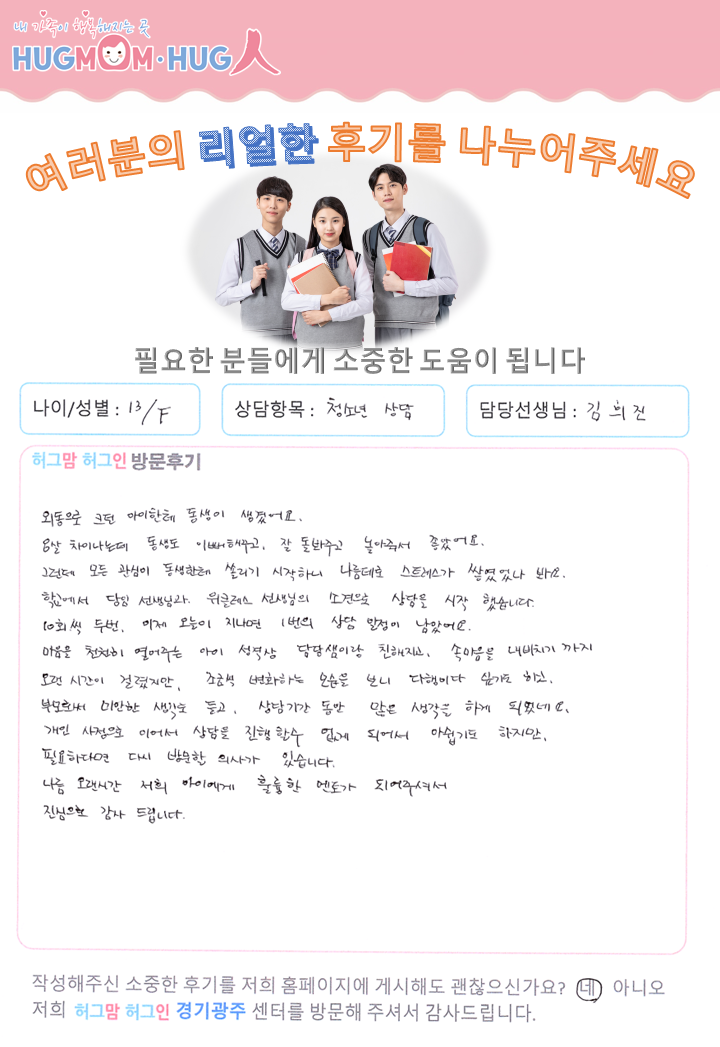 내 가족이 행복해지는 곳
HUGMOM·HUG人
여러분의 리얼한 후기를 나누어주세요
필요한 분들에게 소중한 도움이 됩니다
나이/성별 : 13/F
상담항목 : 청소년 상담
담당선생님 : 김희진
허그맘 허그인 방문후기
외동으로 크던 아이한테 동생이 생겼어요.
8살 차이나는데 동생도 이뻐해주고, 잘 돌봐주고 놀아줘서 좋았어요.
그런데 모든 관심이 동생한테 쏠리기 시작하니 나름대로 스트레스가 쌓였었나 봐요.
학교에서 담임 선생님과. 위클래스 선생님의 소견으로 상담을 시작 했습니다.
10회씩 두번, 이제 오늘이 지나면 1번의 상담 일정이 남았어요.
마음을 천천히 열어주는 아이 성격상 담당쌤이랑 친해지고, 속마음을 내비치기 까지
오랜 시간이 걸렸지만, 조금씩 변화하는 모습을 보니 다행이다 싶기도 하고.
부모로써 미안한 생각도 들고, 상담기간 동안 많은 생각을 하게 되었네요.
개인 사정으로 이어서 상담을 진행할수 없게 되어서 아쉽기도 하지만,
필요하다면 다시 방문할 의사가 있습니다.
나름 오랜시간 저희 아이에게 훌륭한 멘토가 되어주셔서
진심으로 감사 드립니다.
작성해주신 소중한 후기를 저희 홈페이지에 게시해도 괜찮으신가요? 네 아니오
저희 허그맘 허그인 경기광주 센터를 방문해 주셔서 감사드립니다.